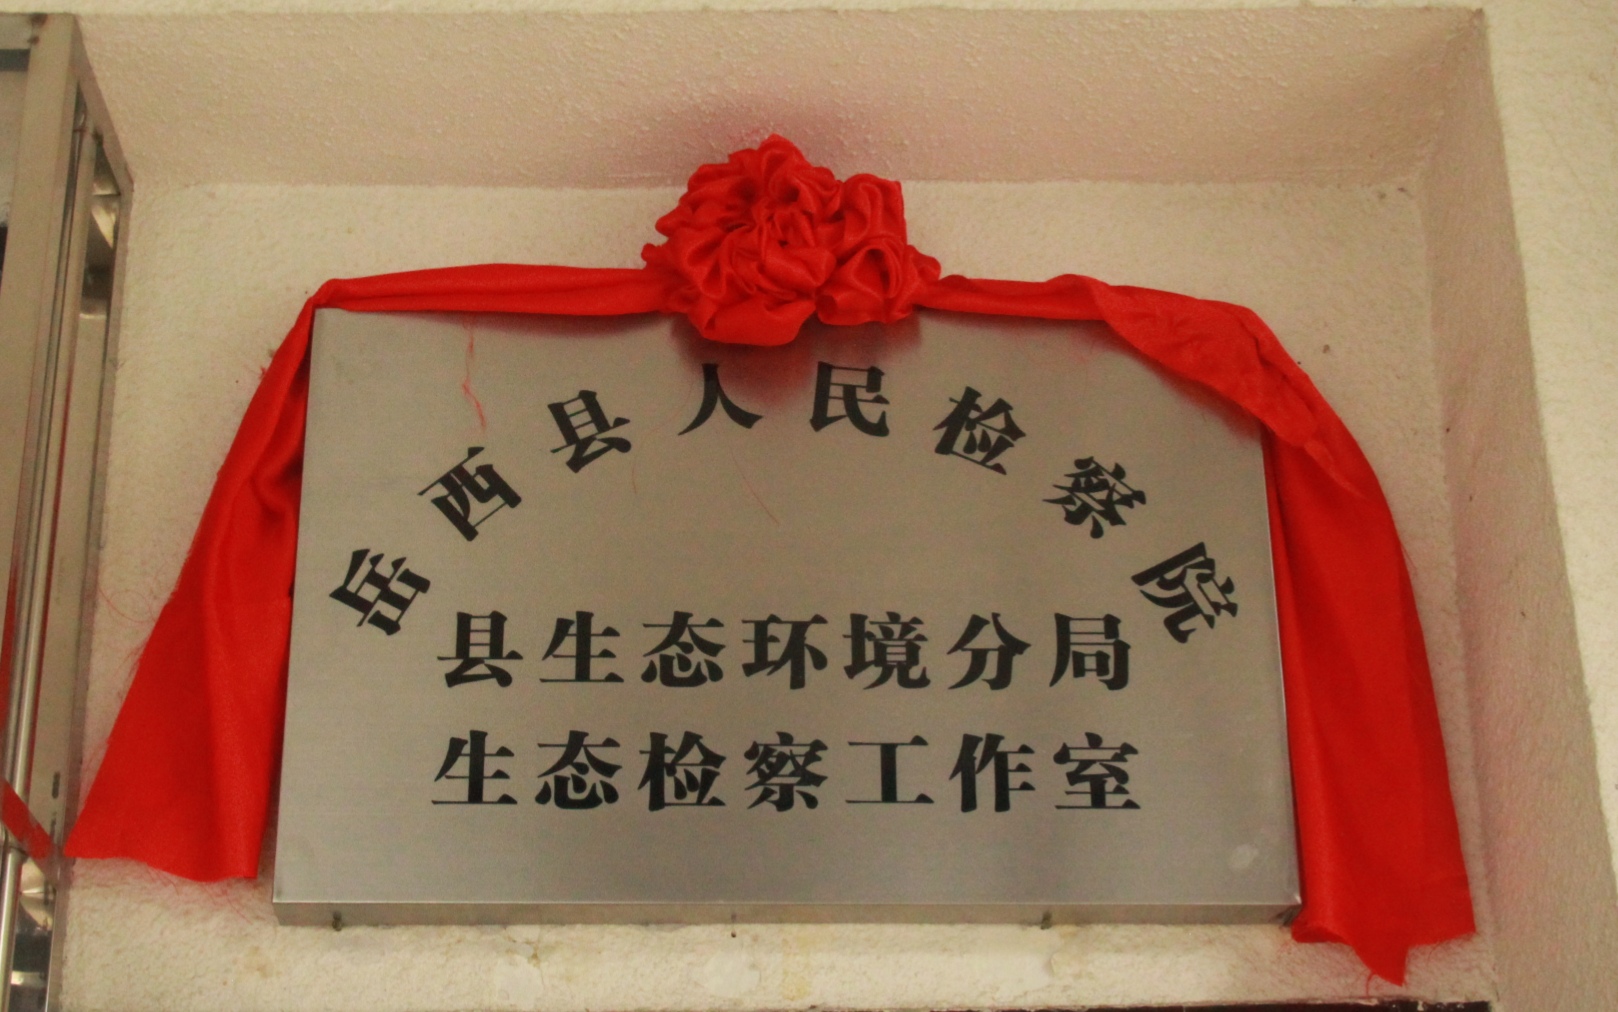 岳西县人民检察院
县生态环境分局
生态检察工作室